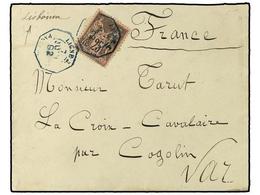 Lisbonne
France
Monsieur Tarut
La Croix - Cavalaire
par Cogolin
Var